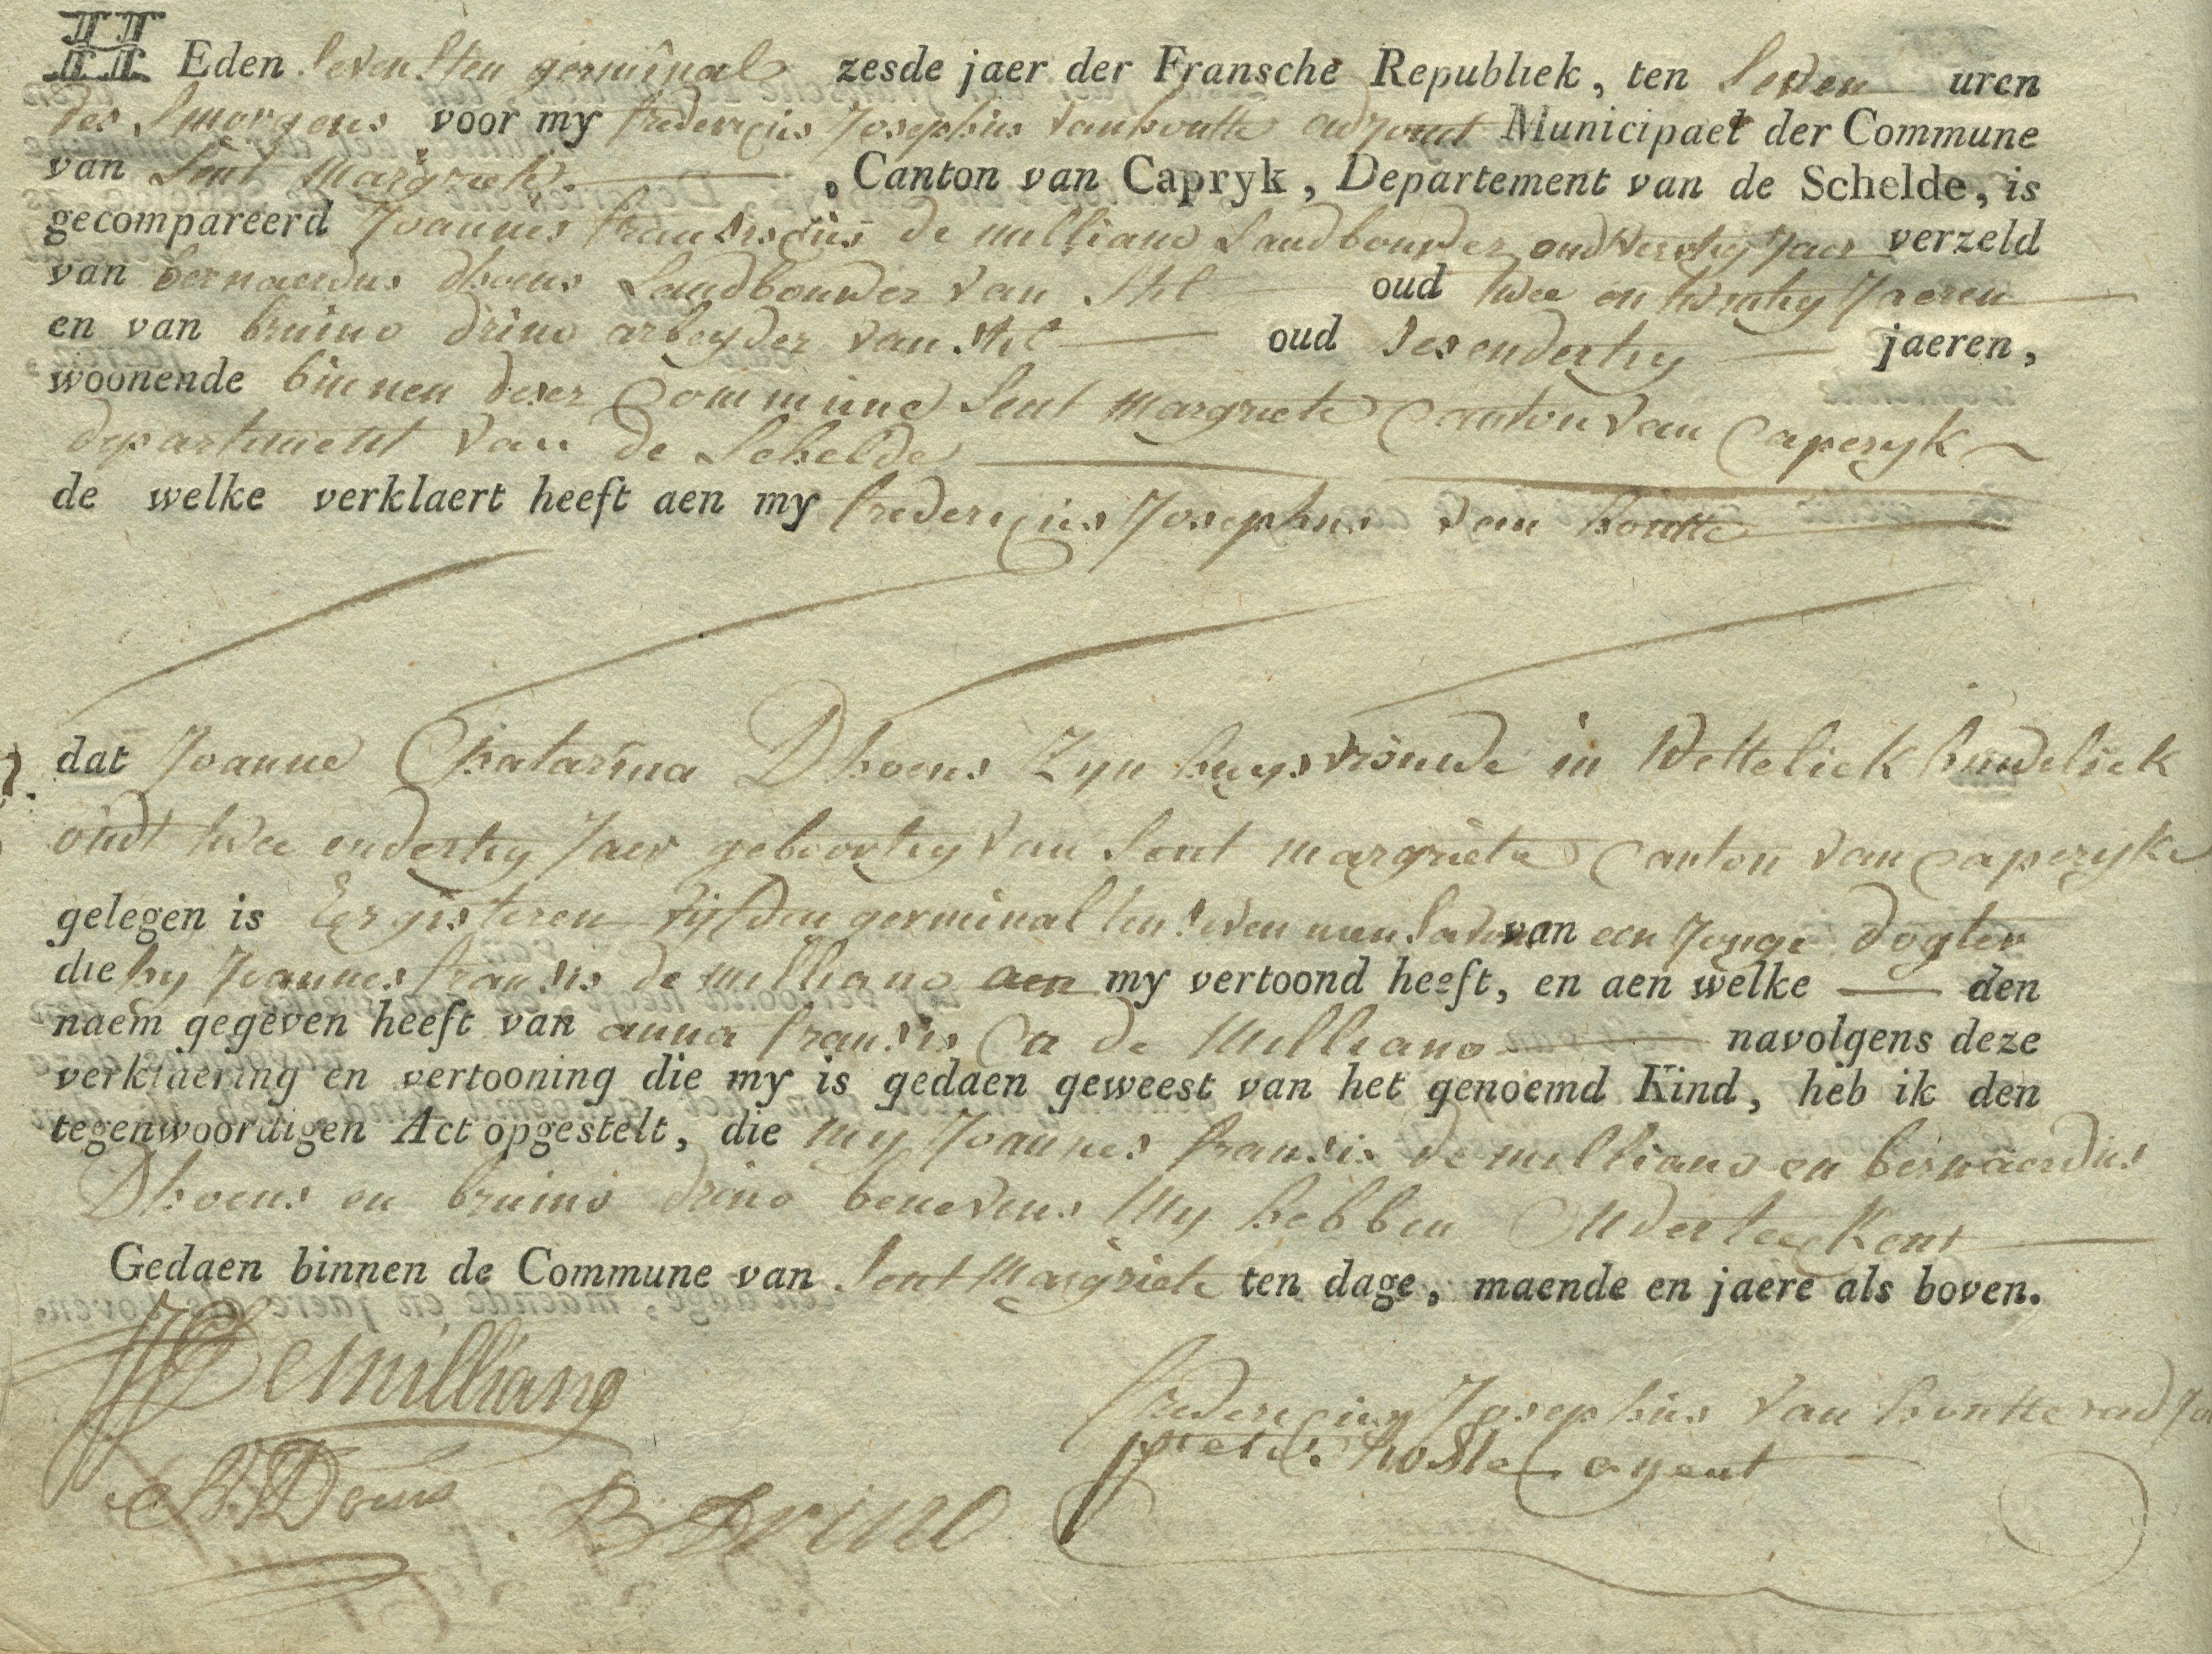 HEden sevensten germinal zesde jaer der Fransche Republiek, ten seven uren
des Smorgens voor my fredericus Josephus vanhoutte adjoint Municipael der Commune
van Sent Margriete, Canton van Capryk, Departement van de Schelde, is
gecompareerd Joannes fransiscus de milliano Landbouwer oudt vertig Jaer verzeld
van bernaerdus dhoens Landbouwer van Stil oud twee en twintig Jaeren
en van bruino drino arbeyder van Stil oud sesendertig jaeren,
woonende binnen deser Commune Sent margriete Canton van Caperyk
departement van de Schelde
de welke verklaert heeft aen my fredericus Josephus van houtte
dat Joanne Chatarina Dhoens Zyn huysvrouwe in Wetteliek huweliek
oudt twee endertig Jaer geboortig van Sent margriete Canton van caperyke
gelegen is Eergisteren vijfden germinal ten seven uren savons van een Jonge dogter
die hy Joannes fransis de milliano aen my vertoond heeft, en aen welke den
naem gegeven heeft van anna fransis Ca de Milliano navolgens deze
verklaering en vertooning die my is gedaen geweest van het genoemd Kind, heb ik den
tegenwoordigen Act opgestelt, die my Joannes fransis de milliano en bernaerdus
Dhoens en bruino drino benevens My hebben Onderteekent
Gedaen binnen de Commune van Sent Margriete ten dage, maende en jaere als boven.
JF De Milliano
fredericus Josephus van houtte adjo
hoste agent
B: Doens B Drino